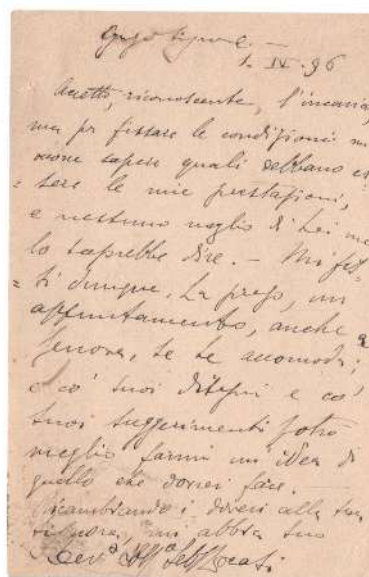 Egregio Signore. —
1. IV. 96
Accetto, riconoscente, l'incarico,
ma per fissare le condizioni mi
occorre sapere quali debbano es
= sere le mie prestazioni,
e nessuno meglio di Lei me
lo saprebbe dire. — Mi fis-
= si dunque, La prego, un
appuntamento, anche a
Genova, se Le accomoda;
e co' suoi disegni e co'
suoi suggerimenti potrò
meglio farmi un'idea di
quello che dovrei fare.
Ricambiando i doveri alla sua
signora, mi abbia suo